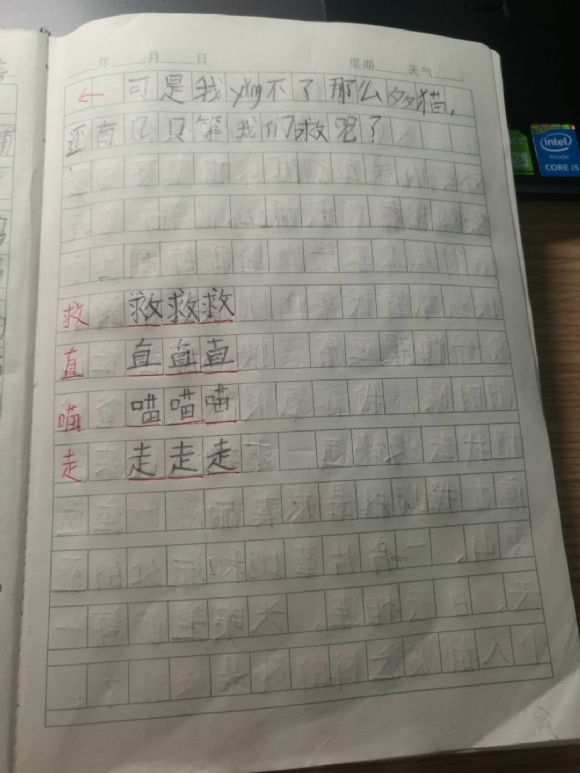 年 月 日 星期 天气
← 可是我yǎng不了那么多猫,
还有几只等我们救呢?
救 救救救
直 直直直
喵 喵喵喵
走 走走走
intel
inside
CORE i5